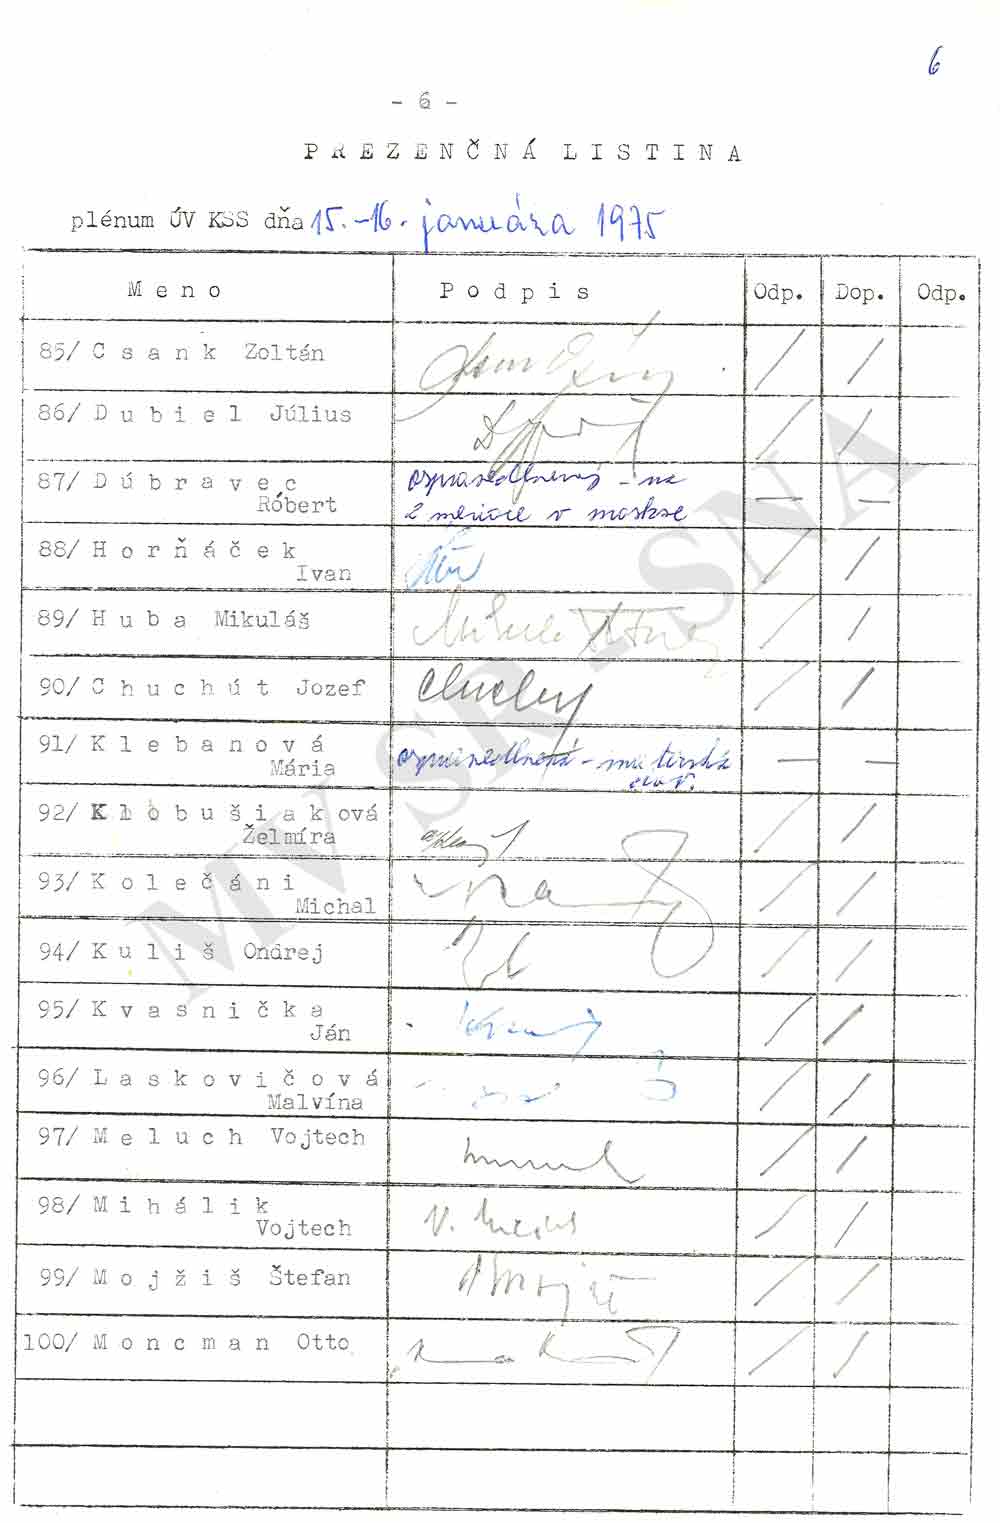 6
- 6 -
PREZENČNÁ LISTINA
plénum ÚV KSS dňa 15.-16. januára 1975
Meno Podpis Odp. Dop. Odp.
85/ Csank Zoltán / /
86/ Dubiel Július / /
87/ Dúbravec ospravedlnený - na — —
Róbert 2 mesiace v moskve
88/ Horňáček / /
Ivan
89/ Huba Mikuláš / /
90/ Chuchút Jozef / /
91/ Klebanová ospravedlnená - materská — —
Mária dov.
92/ Klobušiaková / /
Želmíra
93/ Kolečáni / /
Michal
94/ Kuliš Ondrej / /
95/ Kvasnička / /
Ján
96/ Laskovičová / /
Malvína
97/ Meluch Vojtech / /
98/ Mihálik / /
Vojtech
99/ Mojžiš Štefan / /
100/ Moncman Otto / /
MV SR - SNA